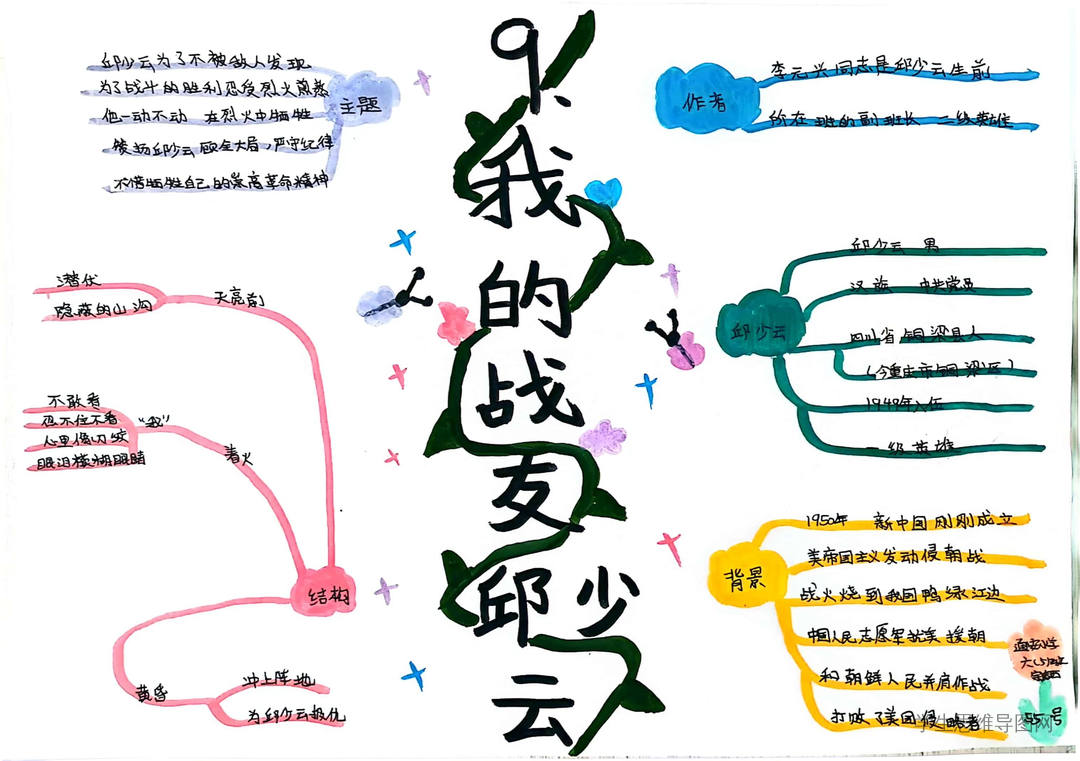 9、我的战友邱少云
主题
邱少云为了不被敌人发现
为了战斗的胜利忍受烈火煎熬
他一动不动 在烈火中牺牲
赞扬邱少云顾全大局，严守纪律
不惜牺牲自己的崇高革命精神
作者
李元兴同志是邱少云生前
所在班的副班长 二级英雄
邱少云
邱少云 男
汉族 中共党员
四川省铜梁县人
（今重庆市铜梁区）
1949年入伍
一级英雄
背景
1950年 新中国刚刚成立
美帝国主义发动侵朝战
战火烧到我国鸭绿江边
中国人民志愿军抗美援朝
和朝鲜人民并肩作战
打败了美国侵略者
结构
天亮前
潜伏
隐蔽的山沟
着火
“我”
不敢看
忍不住不看
心里像刀绞
眼泪模糊眼睛
黄昏
冲上阵地
为邱少云报仇
六（5）班
55号
学生思维导图网